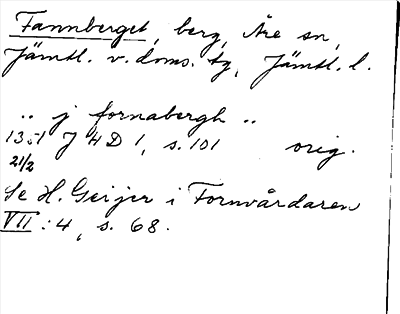 Fannberget, berg, Åre sn,
Jämtl. v. doms. tg, Jämtl. l.
.. j fornabergh ..
1351 J H D 1, s. 101 orig.
21/2
Se H. Geijer i Fornvårdaren
VII: 4, s. 68.